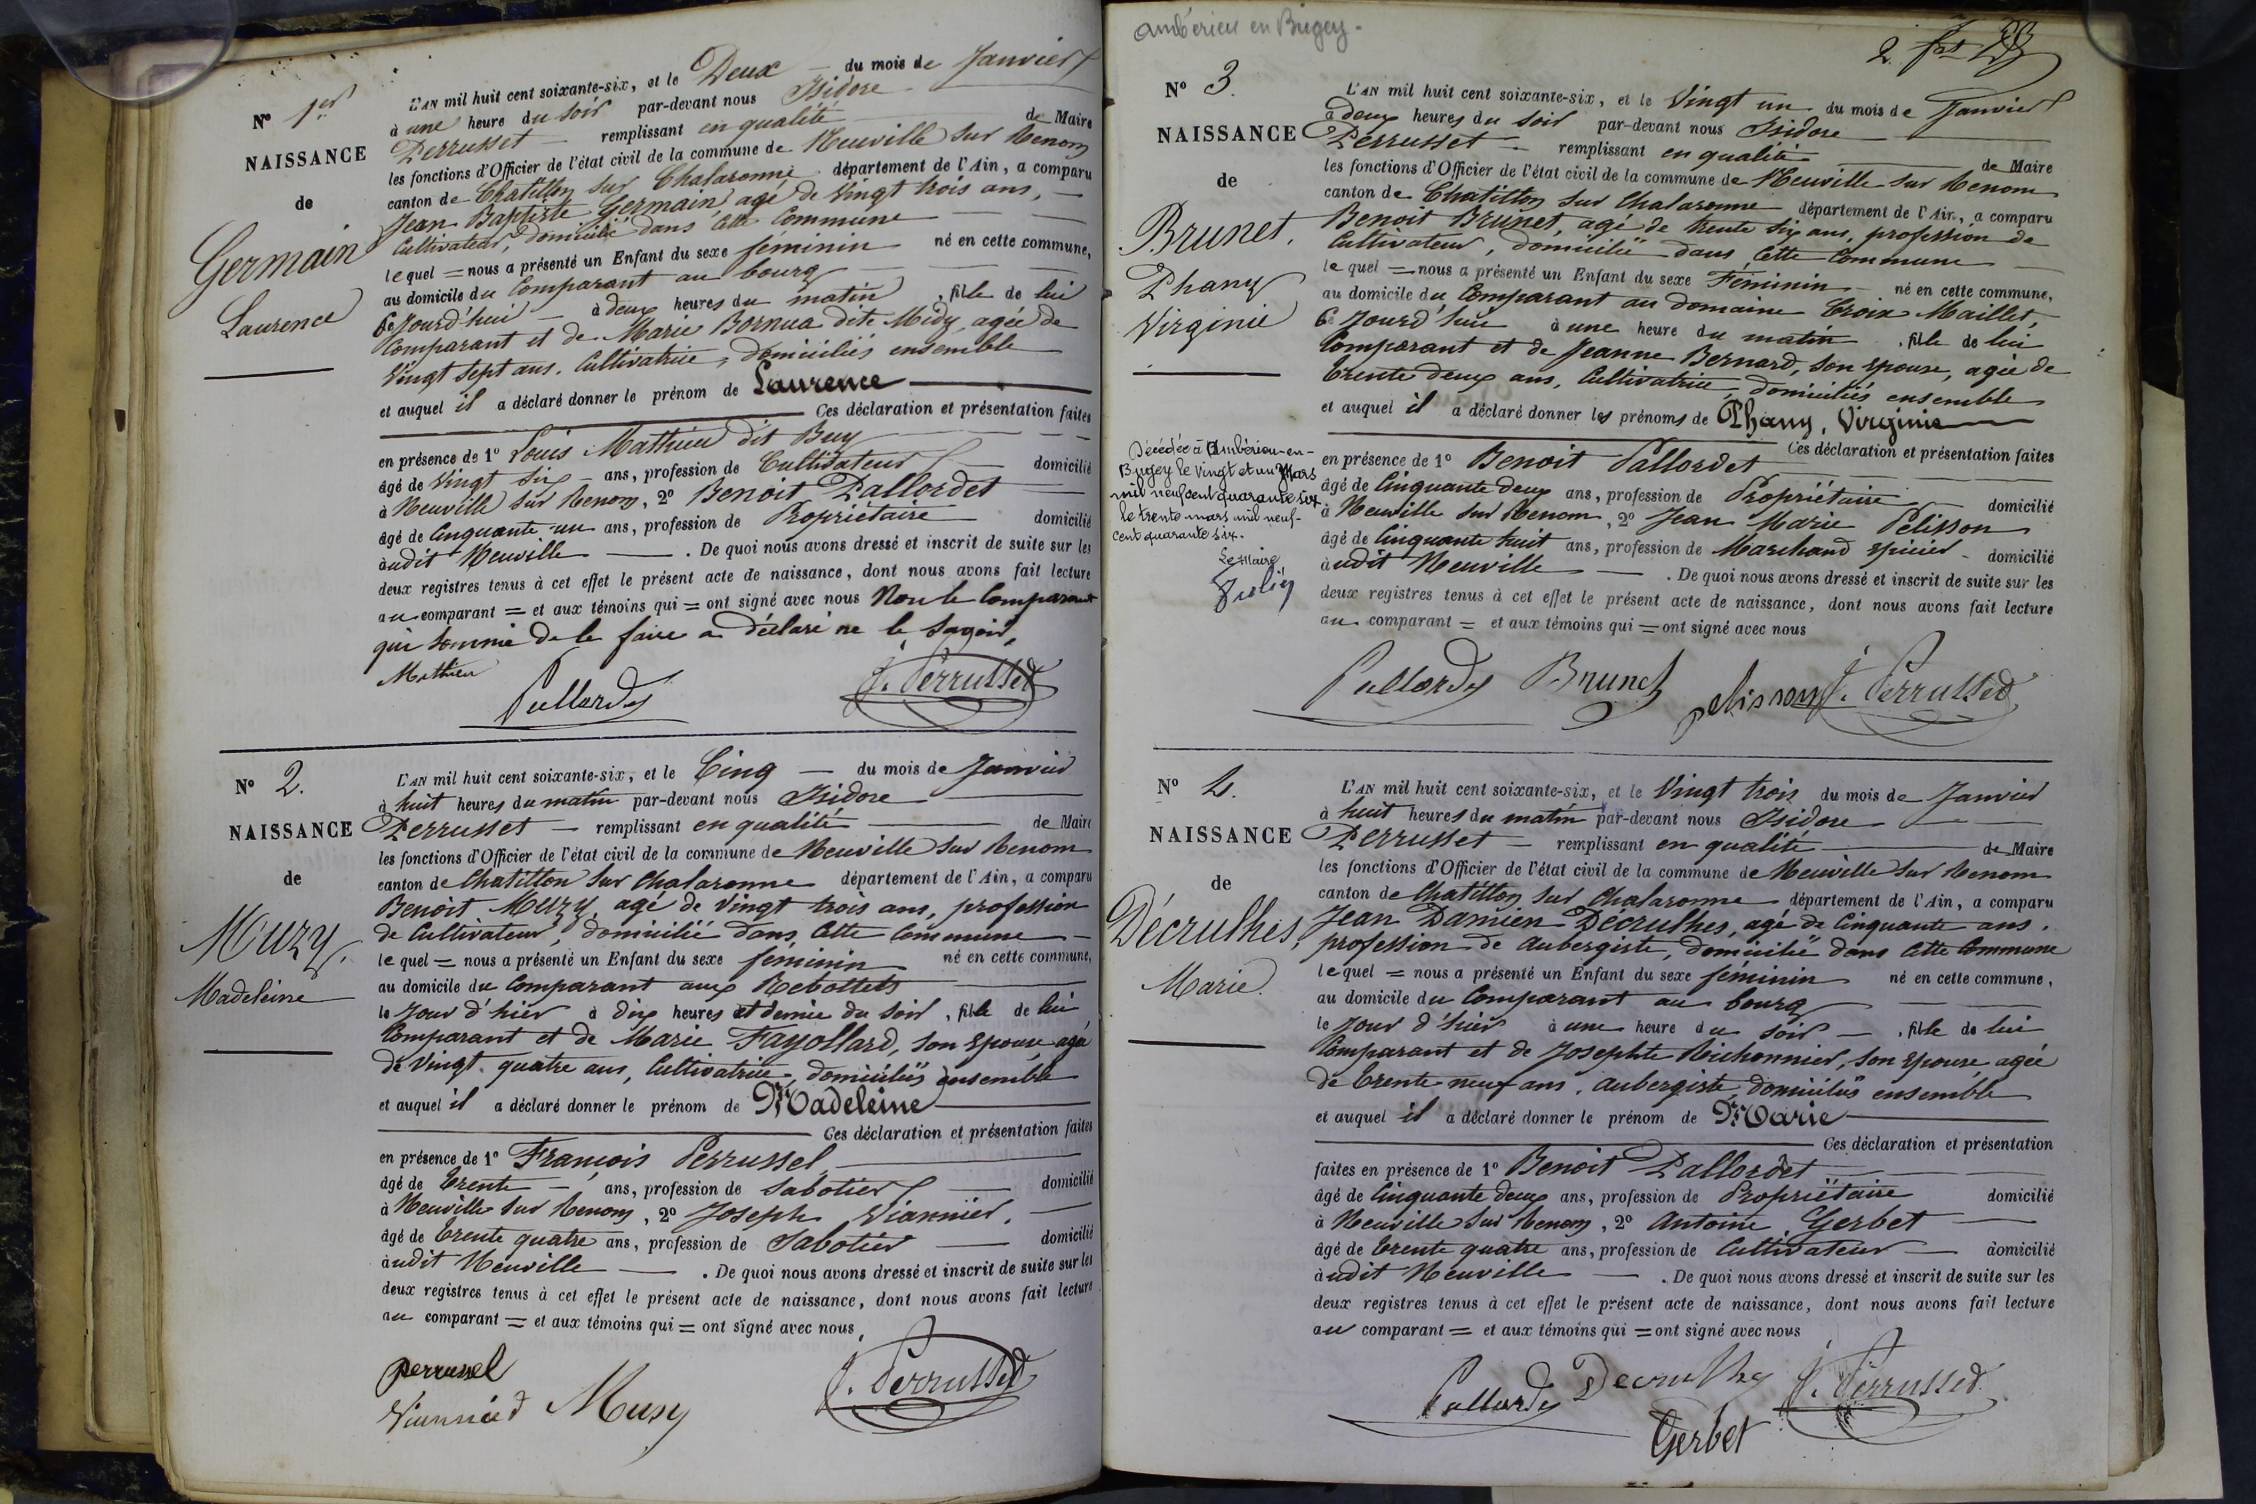 Nº 1er
NAISSANCE
de
Germain
Laurence
L'AN mil huit cent soixante-six, et le Deux — du mois de Janvier
à une heure du soir par-devant nous Isidore
Perrusset — remplissant en qualité — de Maire
les fonctions d'Officier de l'état civil de la commune de Neuville sur Renom
canton de Chatillon sur Chalaronne département de l'Ain, a comparu
Jean Baptiste Germain, agé de vingt trois ans, —
Cultivateur, domicilié dans cette Commune
lequel = nous a présenté un Enfant du sexe féminin né en cette commune,
au domicile du Comparant au bourg
Ce Jourd'hui — à deux heures du matin, fille de lui
Comparant et de Marie Bornua dite Midy, agée de
Vingt sept ans, Cultivatrice, domiciliés ensemble
et auquel il a déclaré donner le prénom de Laurence
Ces déclaration et présentation faites
en présence de 1º Louis Mathieu dit Buy
âgé de vingt six ans, profession de Cultivateur domicilié
à Neuville sur Renom, 2º Benoit Pallordet
âgé de Cinquante un ans, profession de Propriétaire domicilié
audit Neuville — . De quoi nous avons dressé et inscrit de suite sur les
deux registres tenus à cet effet le présent acte de naissance, dont nous avons fait lecture
au comparant = et aux témoins qui = ont signé avec nous Non le Comparant
qui sommé de le faire a déclaré ne le savoir,
Mathieu
Pallordet
J. Perrusset
Nº 2.
NAISSANCE
de
Muzy,
Madeleine
L'AN mil huit cent soixante-six, et le Cinq — du mois de Janvier
à huit heures du matin par-devant nous Isidore
Perrusset — remplissant en qualité — de Maire
les fonctions d'Officier de l'état civil de la commune de Neuville sur Renom
canton de Chatillon sur Chalaronne département de l'Ain, a comparu
Benoit Muzy, agé de vingt trois ans, profession
de Cultivateur, domicilié dans cette Commune —
lequel = nous a présenté un Enfant du sexe féminin né en cette commune,
au domicile du Comparant aux Rebottets
le Jour d'hier à dix heures et demie du soir, fille de lui
Comparant et de Marie Fayollard, son épouse agée
de Vingt quatre ans, Cultivatrice, domiciliés ensemble
et auquel il a déclaré donner le prénom de Madeleine
Ces déclaration et présentation faites
en présence de 1º François Perrussel
âgé de Trente — ans, profession de Sabotier domicilié
à Neuville sur Renom, 2º Joseph Viannier.
âgé de Trente quatre ans, profession de Sabotier — domicilié
audit Neuville — . De quoi nous avons dressé et inscrit de suite sur les
deux registres tenus à cet effet le présent acte de naissance, dont nous avons fait lecture
au comparant = et aux témoins qui = ont signé avec nous,
perrussel
Viannied Musy
J. Perrusset
Ambérieu en Bugey -
Nº 3.
NAISSANCE
de
Brunet,
Phany
Virginie
L'AN mil huit cent soixante-six, et le Vingt un du mois de Janvier
à deux heures du soir par-devant nous Isidore
Perrusset — remplissant en qualité — de Maire
les fonctions d'Officier de l'état civil de la commune de Neuville sur Renom
canton de Chatillon sur Chalaronne département de l'Ain, a comparu
Benoit Brunet, agé de trente six ans, profession de
Cultivateur, domicilié dans cette Commune
lequel = nous a présenté un Enfant du sexe Féminin né en cette commune,
au domicile du Comparant au domaine Croix Maillet,
Ce Jourd'hui à une heure du matin, fille de lui
Comparant et de Jeanne Bernard, son épouse, agée de
Trente deux ans, Cultivatrice, domiciliés ensemble
et auquel il a déclaré donner les prénoms de Phany, Virginie
Ces déclaration et présentation faites
en présence de 1º Benoit Pallordet
âgé de Cinquante deux ans, profession de Propriétaire domicilié
à Neuville sur Renom, 2º Jean Marie Pelisson
âgé de Cinquante huit ans, profession de Marchand épicier domicilié
audit Neuville — . De quoi nous avons dressé et inscrit de suite sur les
deux registres tenus à cet effet le présent acte de naissance, dont nous avons fait lecture
au comparant = et aux témoins qui = ont signé avec nous
Décédée à Ambérieu-en-
Bugey le vingt et un Mars
mil neuf cent quarante six
le trente mars mil neuf-
cent quarante six.
Le Maire
Pallordet Brunet pelisson J. Perrusset
Nº 4.
NAISSANCE
de
Décrulhes,
Marie.
L'AN mil huit cent soixante-six, et le Vingt trois du mois de Janvier
à huit heures du matin par-devant nous Isidore
Perrusset — remplissant en qualité — de Maire
les fonctions d'Officier de l'état civil de la commune de Neuville sur Renom
canton de Chatillon sur Chalaronne département de l'Ain, a comparu
Jean Damien Décrulhes, agé de Cinquante ans,
profession de Aubergiste, domicilié dans cette Commune
lequel = nous a présenté un Enfant du sexe féminin né en cette commune,
au domicile du Comparant au bourg
le Jour d'hier à une heure du soir — , fille de lui
Comparant et de Josephte Richonnier, son épouse, agée
de Trente neuf ans, aubergiste, domiciliés ensemble
et auquel il a déclaré donner le prénom de Marie
Ces déclaration et présentation
faites en présence de 1º Benoit Pallordet
âgé de Cinquante deux ans, profession de Propriétaire domicilié
à Neuville sur Renom, 2º Antoine Gerbet
âgé de Trente quatre ans, profession de Cultivateur — domicilié
audit Neuville — . De quoi nous avons dressé et inscrit de suite sur les
deux registres tenus à cet effet le présent acte de naissance, dont nous avons fait lecture
au comparant = et aux témoins qui = ont signé avec nous
Pallordet Decrulhes J. Perrusset
Gerbet